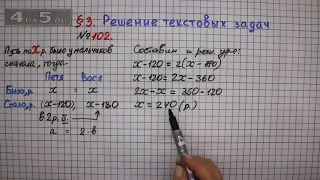 4DA5.RU
§ 3. Решение текстовых задач
№ 102.
Пусть по х р. было у мальчиков
сначала, тогда
Петя Вася
Было, р. х = х
Стало, р. (х-120), х-180
в 2 р. б.
а = 2·в
Составим и реш. ур-е:
х-120 = 2(х-180)
х-120 = 2х-360
2х-х = 360-120
х = 240 (р.)